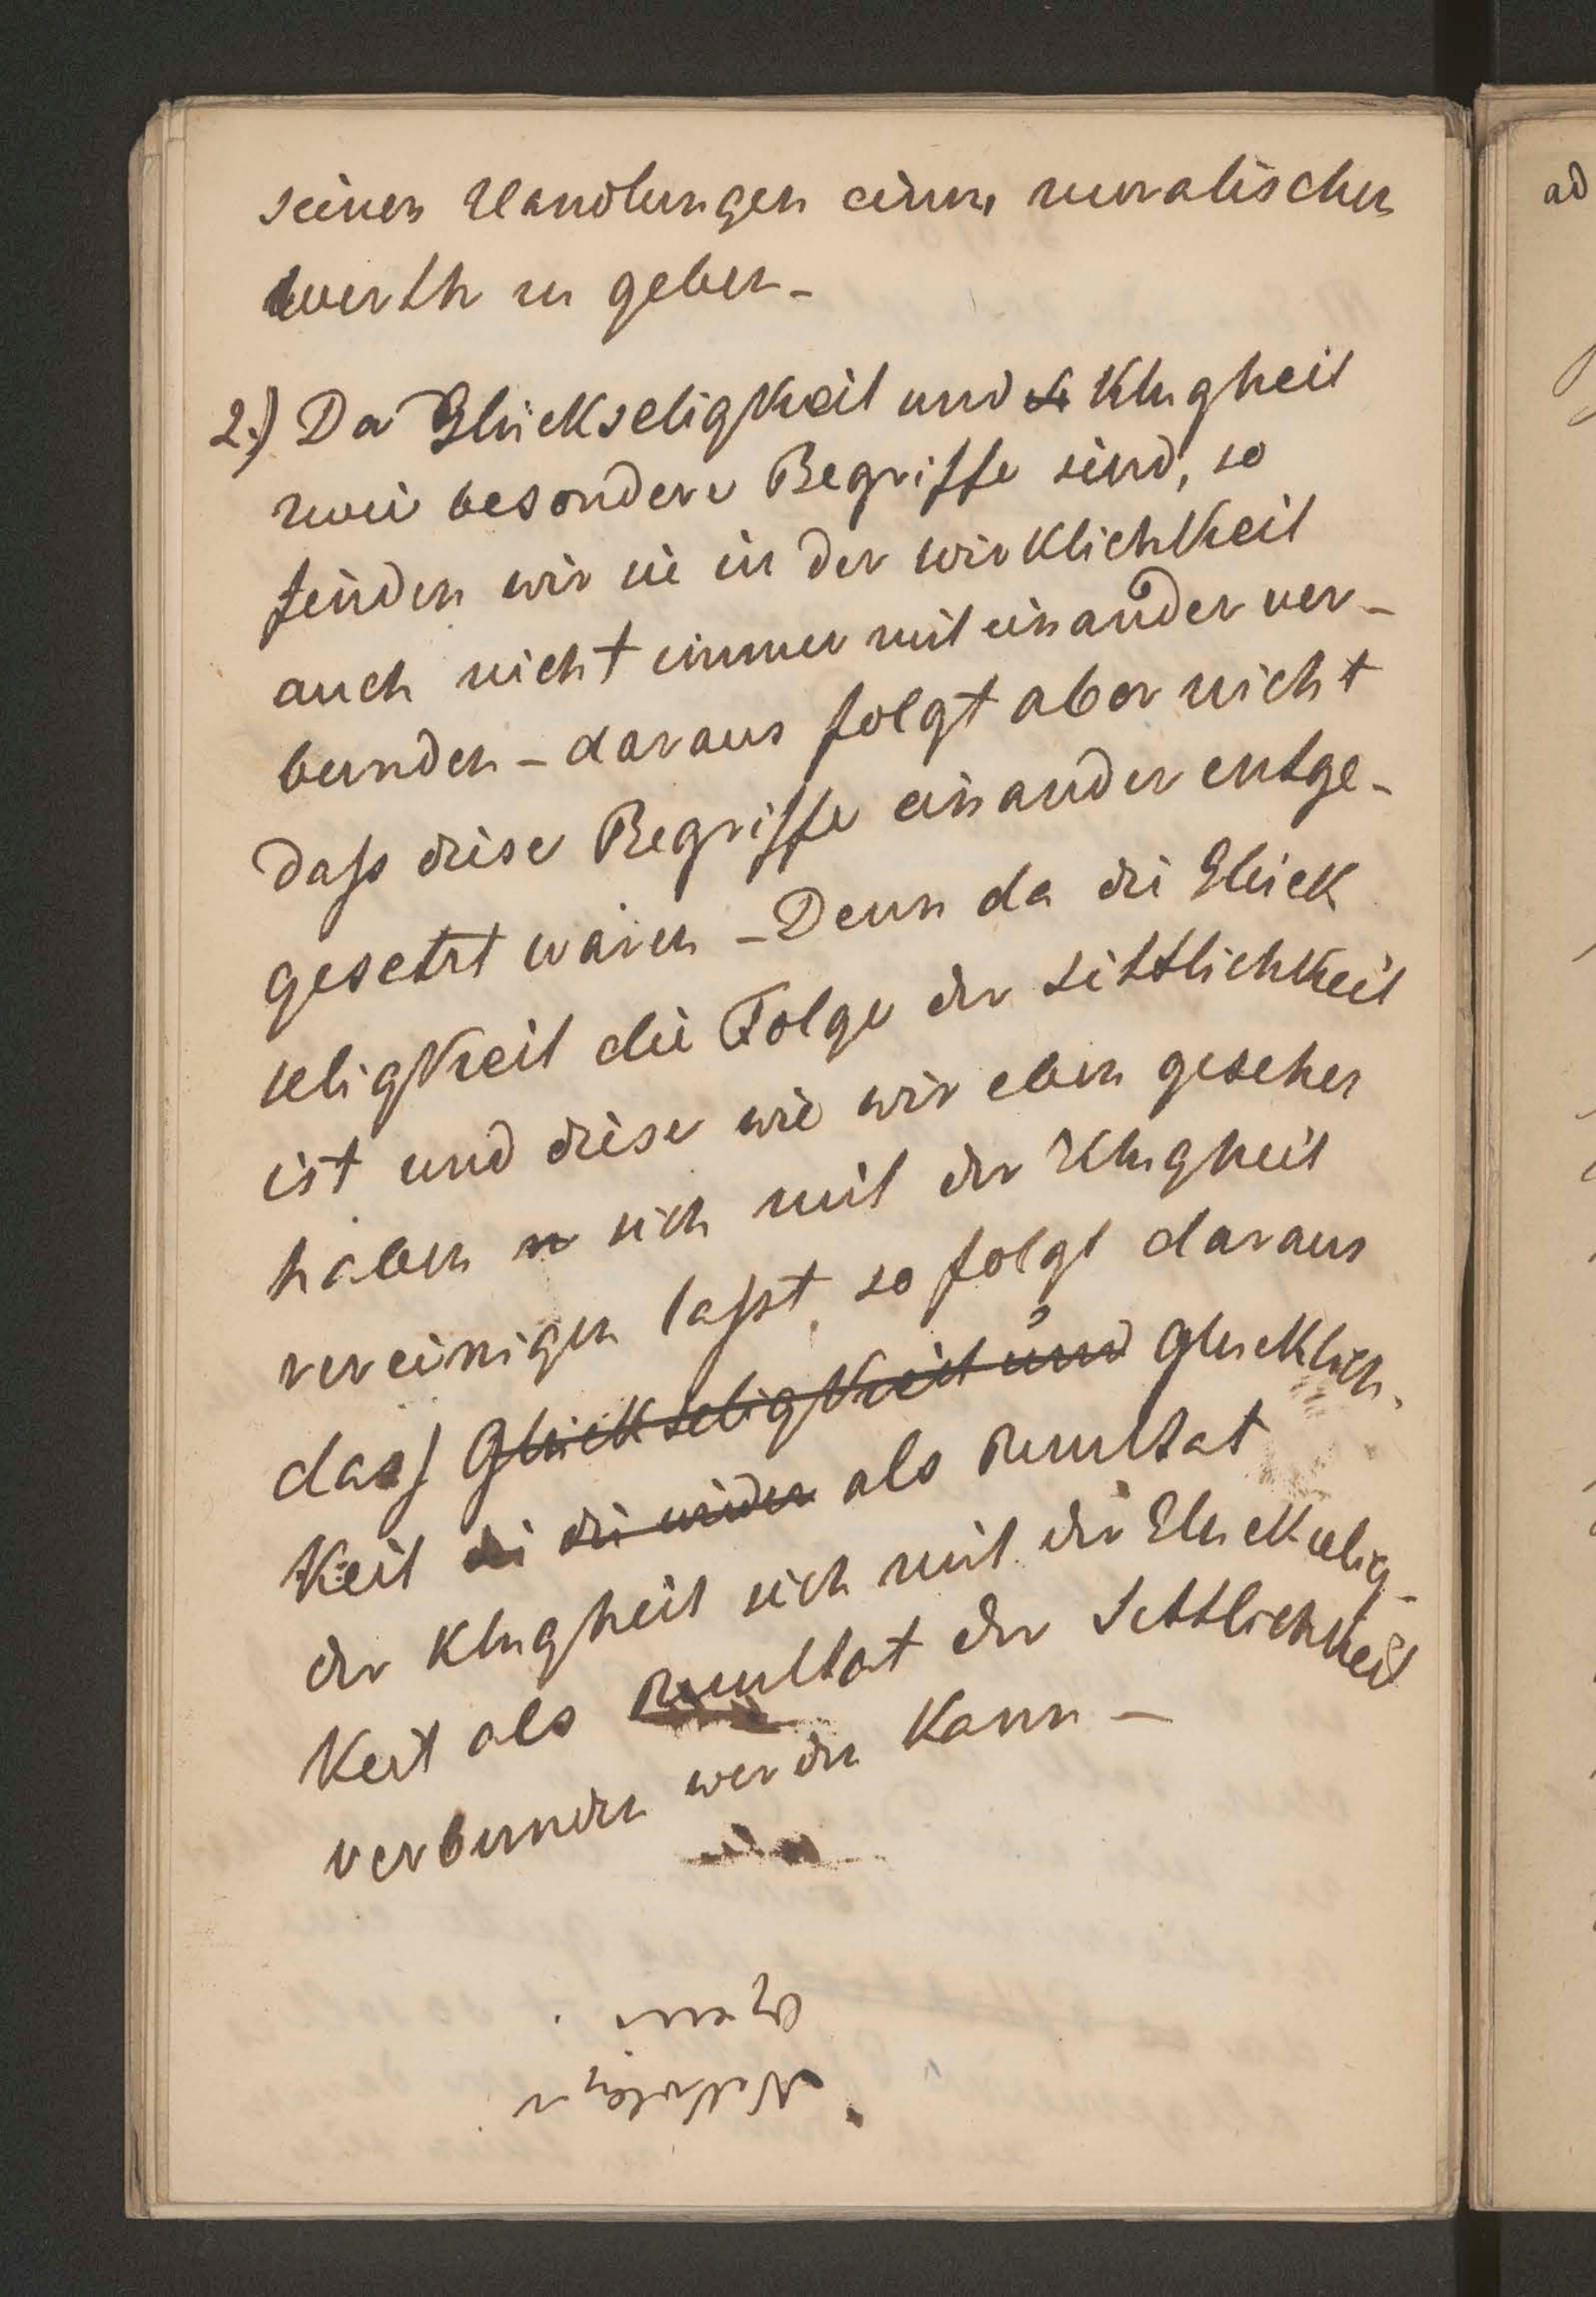 seinen Handlungen einen moralischen
werth zu geben –
2.) Da Glückseligkeit und Klugheit
zwei besondere Begriffe sind, so
finden wir sie in der wirklichkeit
auch nicht immer mit einander ver-
bunden – daraus folgt aber nicht
daß diese Begriffe einander entge-
gesetzt wären – Denn da die Glück
seligkeit die Folge der sittlichkeit
ist und diese wie wir eben gesehen
haben sich mit der Klugheit
vereinigen laßt, so folgt daraus
dass Glückseligkeit und Glucklich-
Keit die die wieder als Resultat
der Klugheit sich mit der Gluckselig-
Keit als Resultat der Sittlichkeit
verbunden werden Kann –
ad